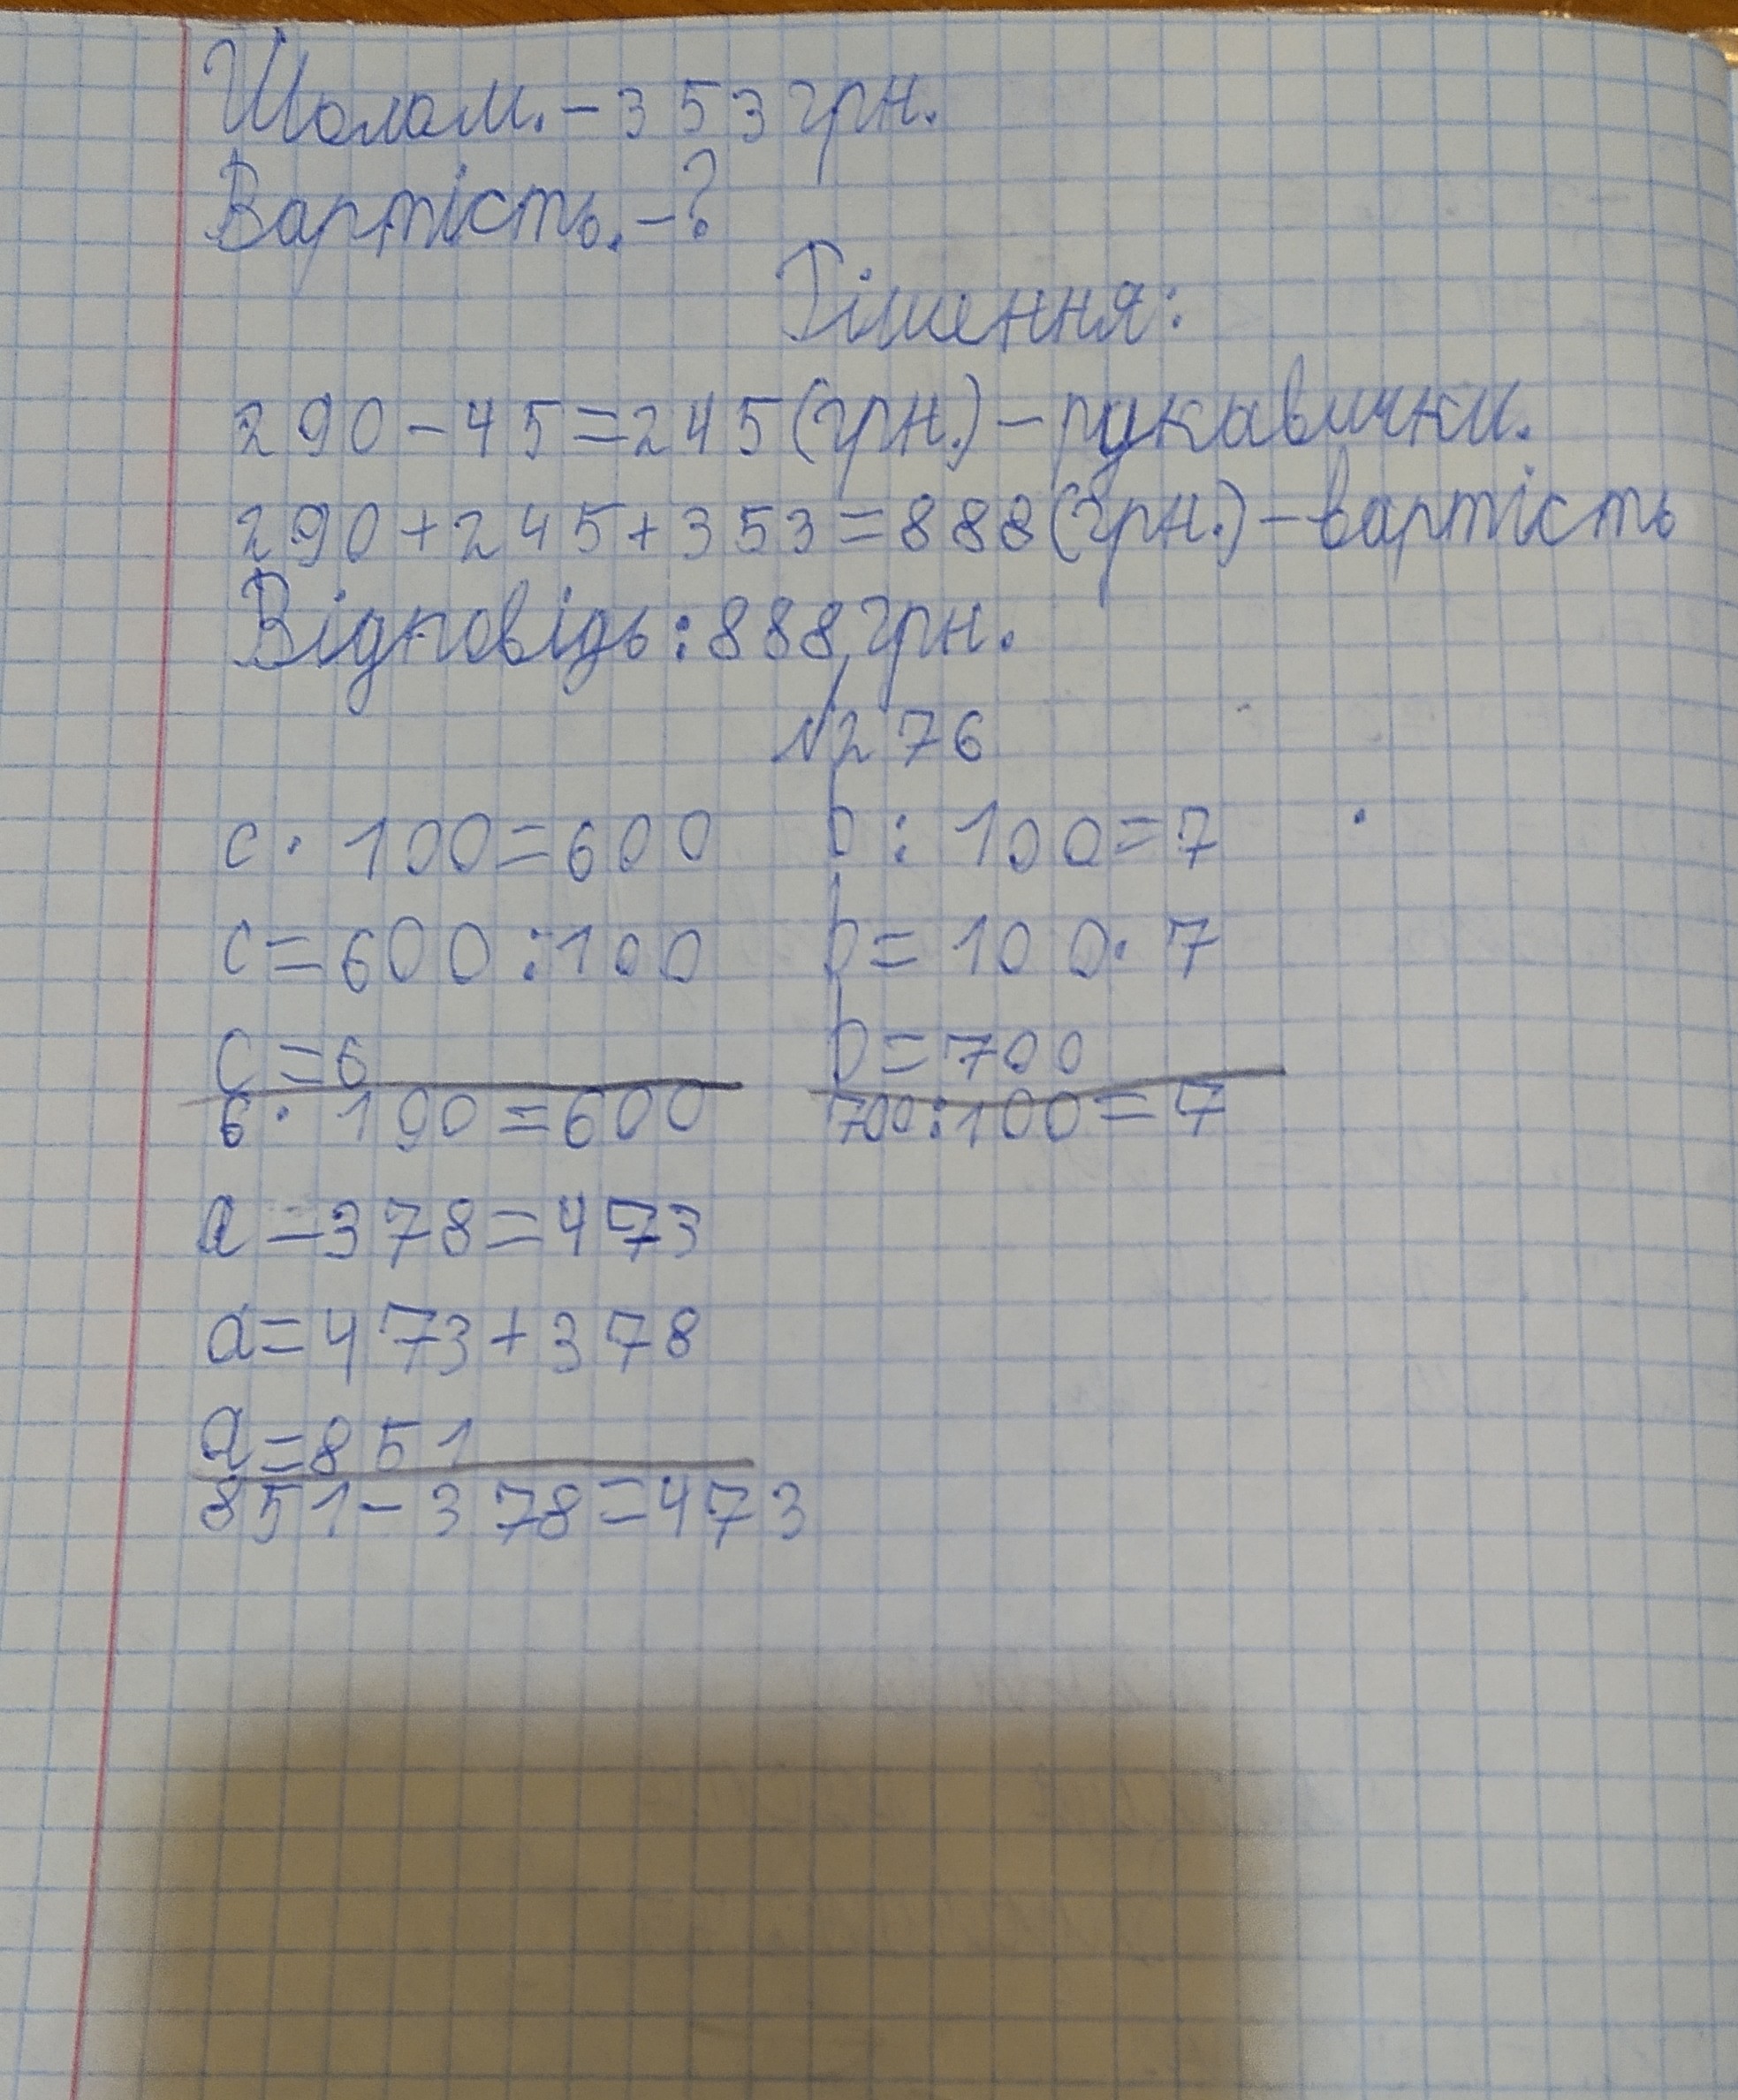 Шолом. - 353 грн.
Вартість. - ?
Рішення:
290 - 45 = 245 (грн.) - рукавички.
290 + 245 + 353 = 888 (грн.) - вартість
Відповідь: 888 грн.
№276
c · 100 = 600    b : 100 = 7
c = 600 : 100    b = 100 · 7
c = 6    b = 700
6 · 100 = 600    700 : 100 = 7
a - 378 = 473
a = 473 + 378
a = 851
851 - 378 = 473